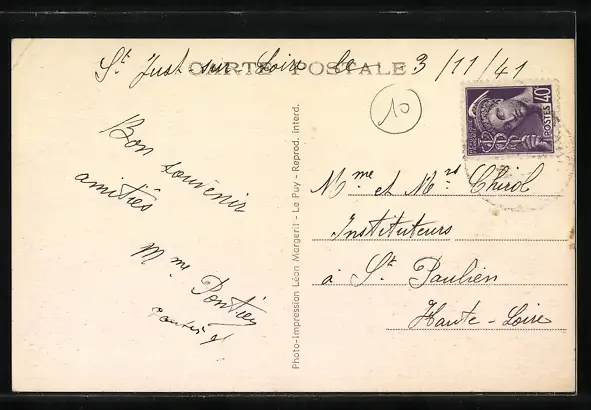 St Just-sur-Loire le 3/11/41
CARTE POSTALE
10
40
POSTES
Bon souvenir
amitiés
Mme
Photo-Impression Léon Margerit - Le Puy - Reprod. interd.
Mme et Mrs Chirol
Instituteurs
à St. Paulien
Haute-Loire